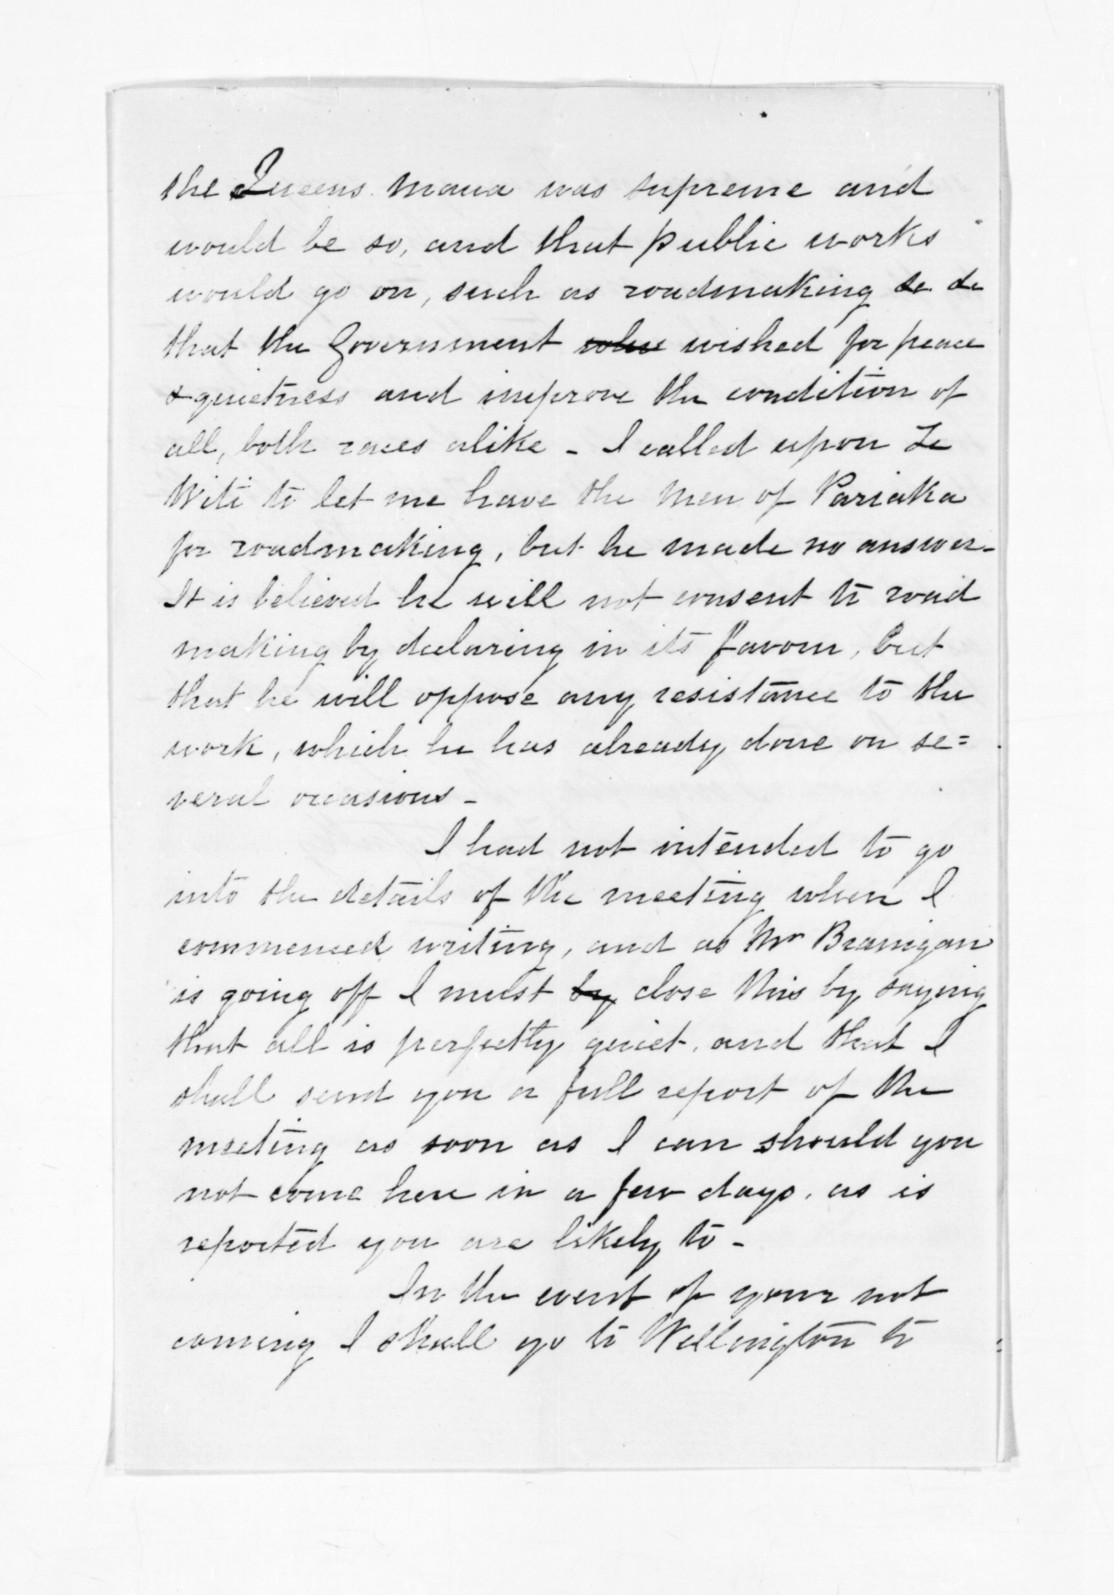 the Queens mana was supreme and
would be so, and that public works
would go on, such as roadmaking &c &c
that the Government when wished for peace
& quietness and improve the condition of
all, both races alike - I called upon Te
Witi to let me have the men of Pariaka
for roadmaking, but he made no answer -
It is believed he will not consent to road
making by declaring in its favour, but
that he will oppose any resistance to the
work, which he has already done on se=
veral occasions -
I had not intended to go
into the details of the meeting when I
commenced writing, and as Mr Branigan
is going off I must by close this by saying
that all is perfectly quiet, and that I
shall send you a full report of the
meeting as soon as I can should you
not come here in a few days, as is
reported you are likely to -
In the event of your not
coming I shall go to Wellington to